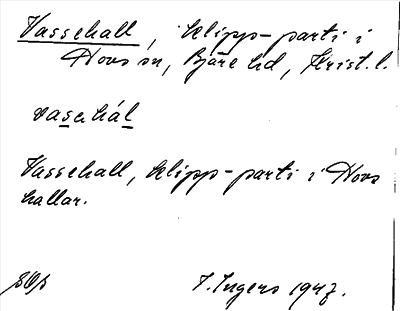 Vassehall, klipp-parti i
Hovs sn, Bjäre hd, Krist. l.
vasehál
Vassehall, klipp-parti i Hovs
hallar.
I. Ingers 1947.